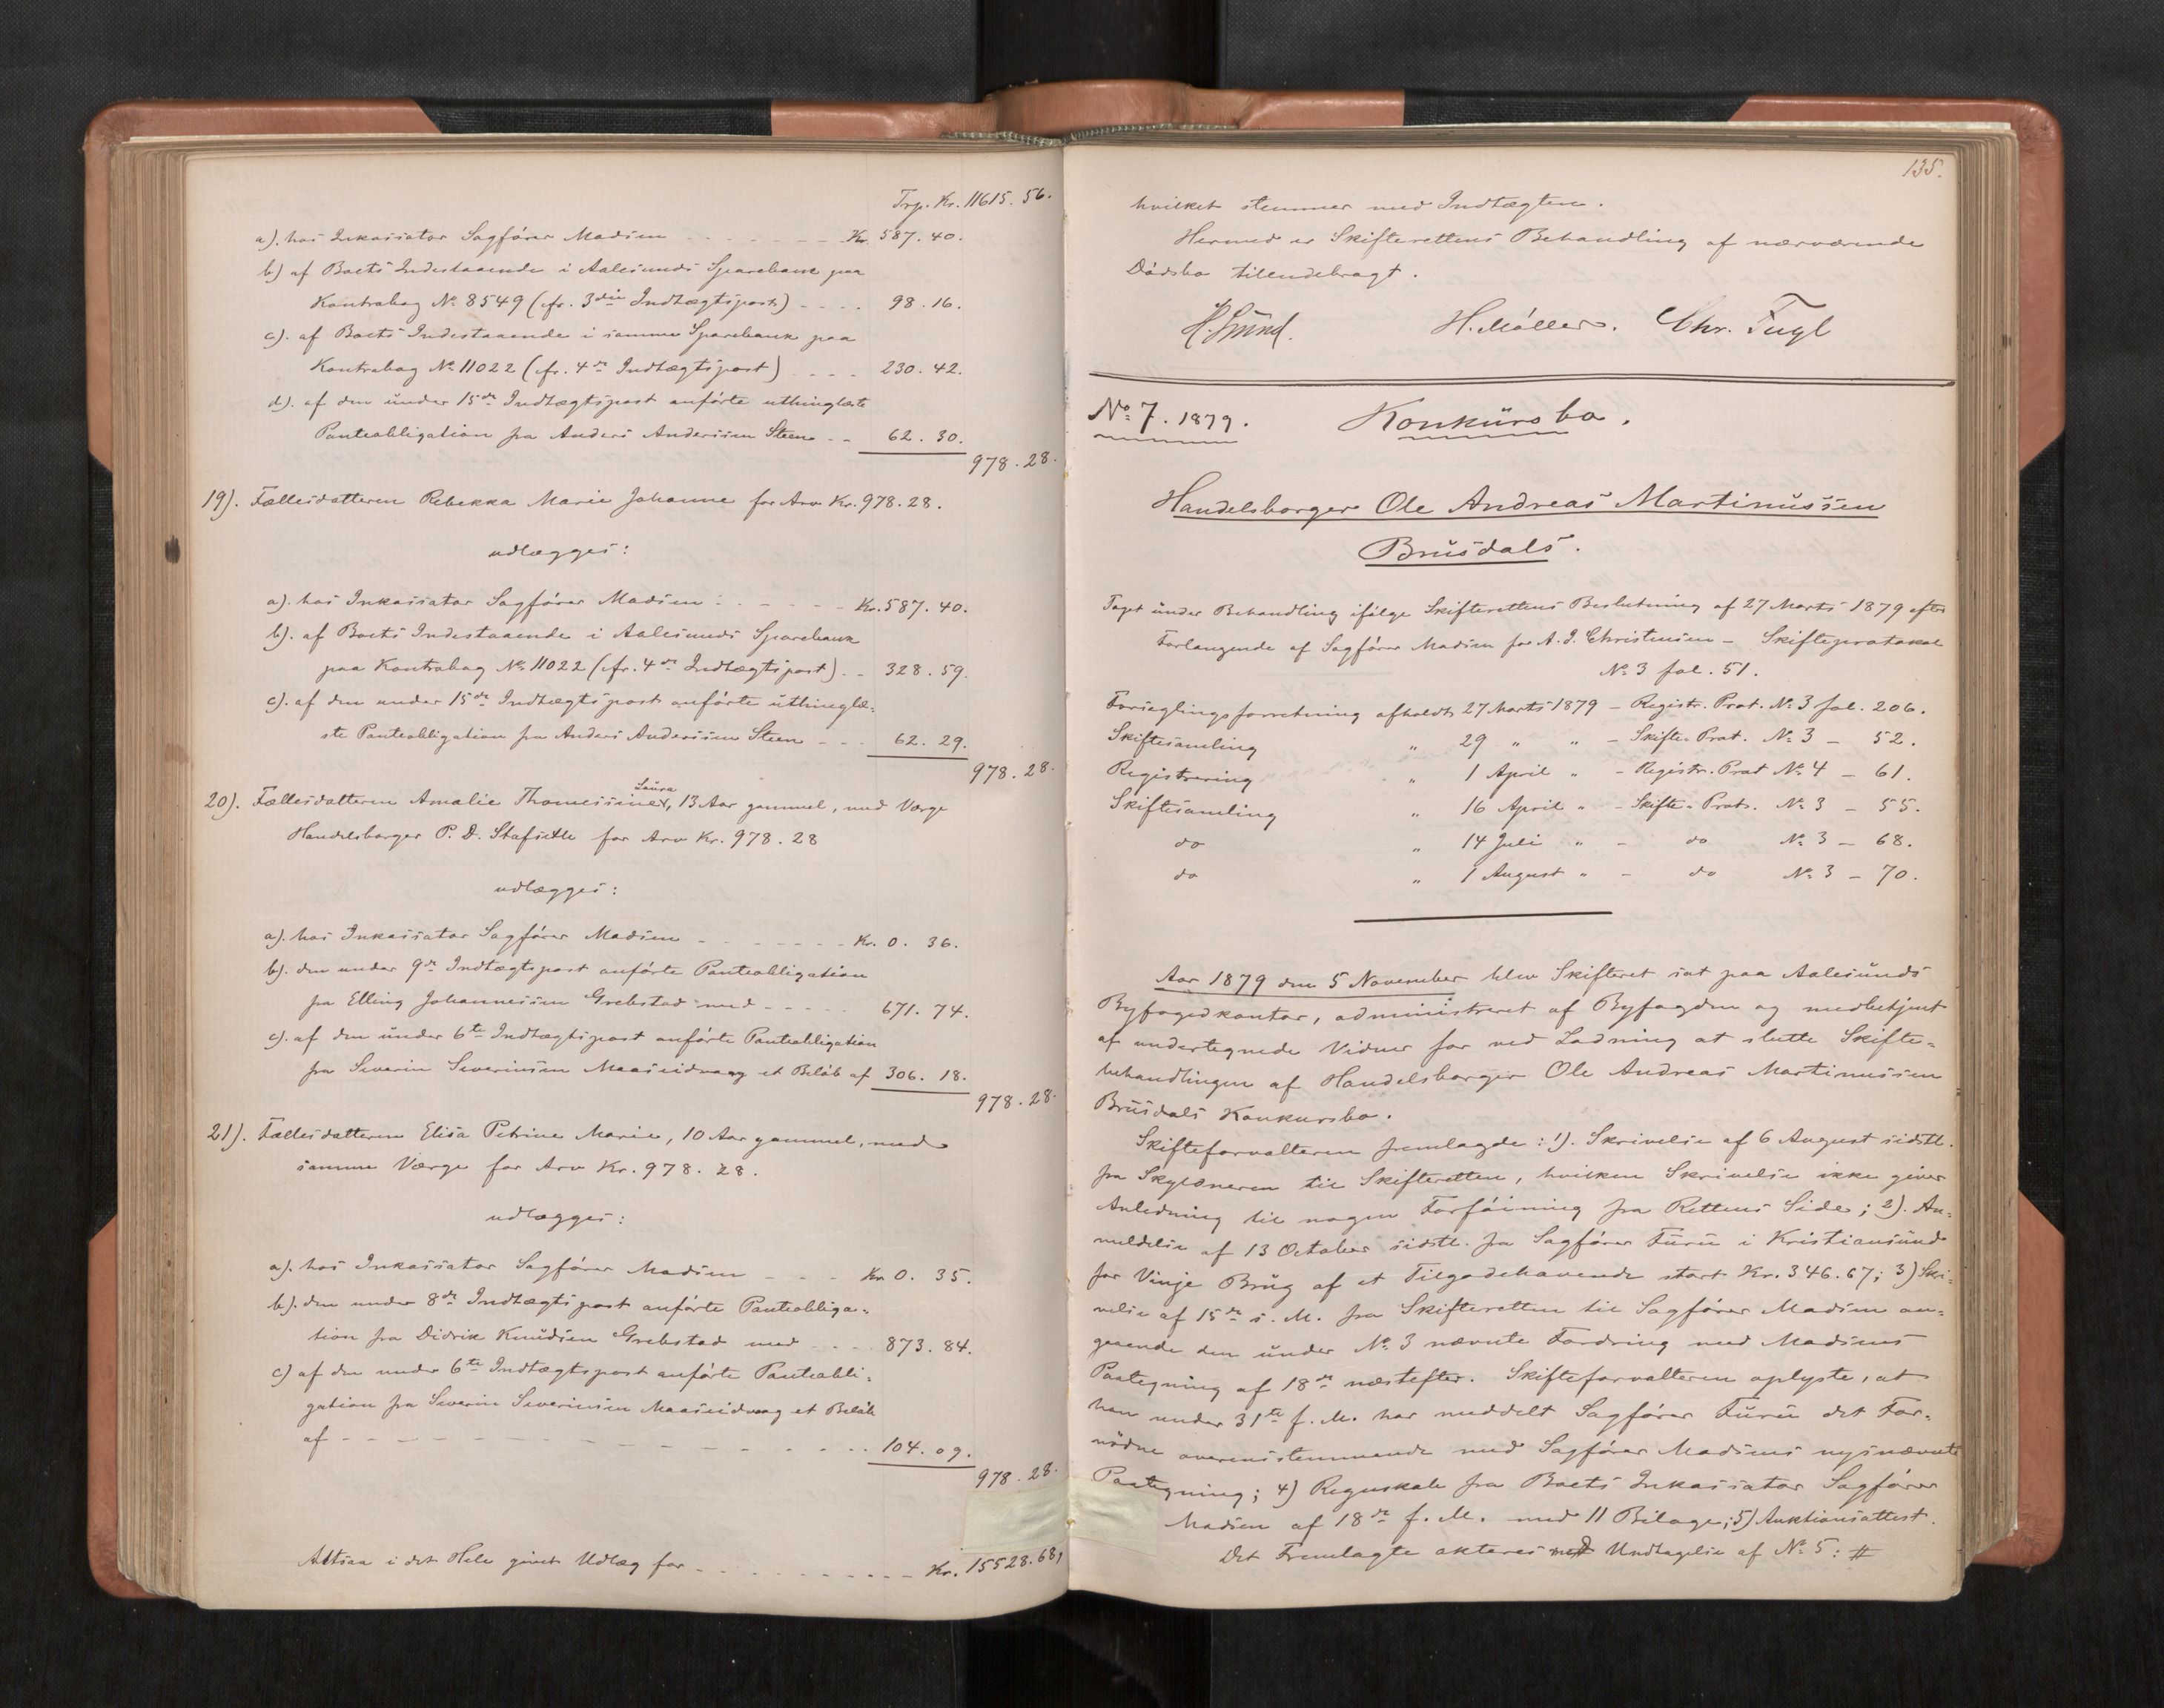 Trp. Kr. 11615. 56.
a). hos Inkassator Sagfører Madsen - - - - - - - Kr. 587. 40.
b) af Boets Indestaaende i Aalesunds Sparebank paa
Kontrabog No. 8549 (cfr. 3die Indtægtspost) - - - - 98. 16.
c). af Boets Indestaaende i samme Sparebank paa
Kontrabog No 11022 (cfr. 4de Indtægtspost) - - - - 230. 42.
d). af den under 15de Indtægtspost anførte uthinglæste
Panteobligation fra Anders Anderssen Steen - - 62. 30.
978. 28.
19). Fællesdatteren Rebekka Marie Johanne for Arv Kr. 978. 28.
udlægges:
a). hos Inkassator Sagfører Madsen - - - - - - Kr. 587. 40.
b). af Boets Indestaaende i Aalesunds Sparebank
paa Kontrabog No. 11022 (cfr. 4de Indtægtspost). - 328. 59.
c). af den under 15de Indtægtspost anførte uthinglæ-
ste Panteobligation fra Anders Anderssen Steen - - - 62. 29.
978. 28.
Laura
20). Fællesdatteren Amalie Thomessine, 13 Aar gammel, med Værge
Handelsborger P. D. Stafseth for Arv Kr. 978. 28
udlægges:
a). hos Inkassator Sagfører Madsen - - - - - - - - Kr. 0. 36.
b). den under 9de Indtægtspost anførte Panteobligation
fra Elling Johannessen Grebstad med - - - - - 671. 74.
c). af den under 6te Indtægtspost anførte Panteobligation
fra Severin Severinsen Maaseidvaag et Beløb af 306. 18.
978. 28.
21). Fællesdatteren Elisa Petrine Marie, 10 Aar gammel, med
samme Værge for Arv Kr. 978. 28.
udlægges:
a). hos Inkassator Sagfører Madsen - - - Kr. 0. 35.
b). den under 8de Indtægtspost anførte Panteobliga-
tion fra Didrik Knudsen Grebstad med - - - - 873. 84.
c) af den under 6te Indtægtspost anførte Panteobli-
gation fra Severin Severinsen Maaseidvaag et Beløb
af - - - - - - - - - - - - - - - 104. 09.
978. 28.
Altsaa i det Hele givet Udlæg for - - - - - - - - - - - Kr. 15528. 68,
135.
hvilket stemmer med Indtægten.
Hermed er Skifterettens Behandling af nærværende
Dødsbo tilendebragt.
H. Møller. Chr. Fugl
No. 7. 1879. Konkursbo.
Handelsborger Ole Andreas Martinussen
Brusdals.
Taget under Behandling ifølge Skifterettens Beslutning af 27 Marts 1879 efter
Forlangende af Sagfører Madsen for A. J. Christensen - Skifteprotokol
No. 3 fol. 51.
Forseglingsforretning afholdt 27 Marts 1879 - Registr. Prot. No. 3 fol. 206.
Skiftesamling „ 29 „ „ - Skifte-Prot. No. 3 - 52.
Registrering „ 1 April „ - Registr. Prot No. 4 - 61.
Skiftesamling „ 16 April „ - Skifte-Prot. No. 3 - 55.
do „ 14 Juli „ - do No. 3 - 68.
do „ 1 August „ - do No. 3 - 70.
Aar 1879 den 5 November blev Skifteret sat paa Aalesunds
Byfogedkontor, administreret af Byfogden og medbetjent
af undertegnede Vidner for ved Lodning at slutte Skifte-
behandlingen af Handelsborger Ole Andreas Martinussen
Brusdals Konkursbo.
Skifteforvalteren fremlagde: 1). Skrivelse af 6 August sidstl.
fra Skyldneren til Skifteretten, hvilken Skrivelse ikke giver
Anledning til nogen Forføining fra Rettens Side; 2). An-
meldelse af 13 October sidstl. fra Sagfører Furu i Kristiansund
for Vinje Brug af et Tilgodehavende stort Kr. 346. 67; 3) Skri-
velse af 15de s. M. fra Skifteretten til Sagfører Madsen an-
gaaende den under No. 3 nævnte Fordring med Madsens
Paategning af 18de næstefter. Skifteforvalteren oplyste, at
han under 31te f. M. har meddelt Sagfører Furu det For-
nødne overensstemmende med Sagfører Madsens nysnævnte
Paategning; 4) Regnskab fra Boets Inkassator Sagfører
Madsen af 18de f. M. med 11 Bilage; 5) Auktionsattest.
Det Fremlagte akteres med Undtagelse af No. 5: #